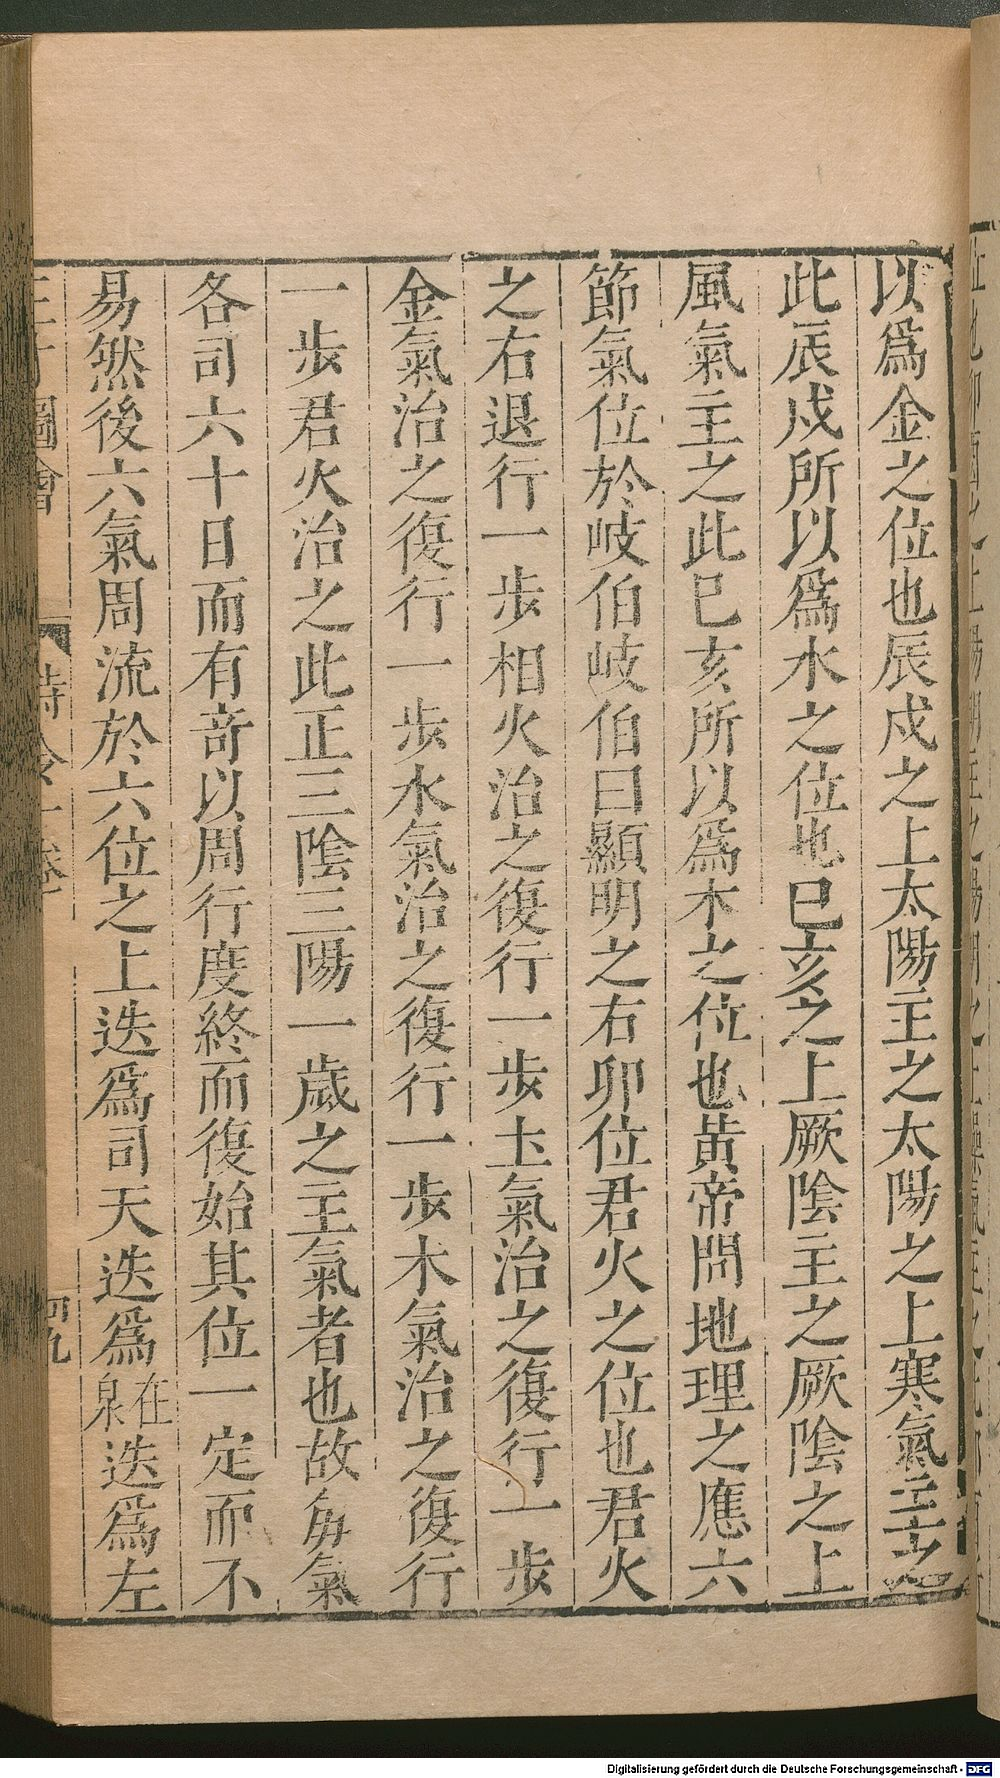 以爲金之位也辰戍之上太陽主之太陽之上寒氣主之
此辰戍所以爲水之位也巳亥之上厥隂主之厥隂之上
風氣主之此巳亥所以爲木之位也黃帝問地理之應六
節氣位於岐伯岐伯曰顯明之右卯位君火之位也君火
之右退行一步相火治之復行一步土氣治之復行一步
金氣治之復行一步水氣治之復行一步木氣治之復行
一步君火治之此正三隂三陽一歲之主氣者也故每氣
各司六十日而有奇以周行度終而復始其位一定而不
易然後六氣周流於六位之上迭爲司天迭爲在泉迭爲左
圖會 時令一卷
四九
Digitalisierung gefördert durch die Deutsche Forschungsgemeinschaft - DFG